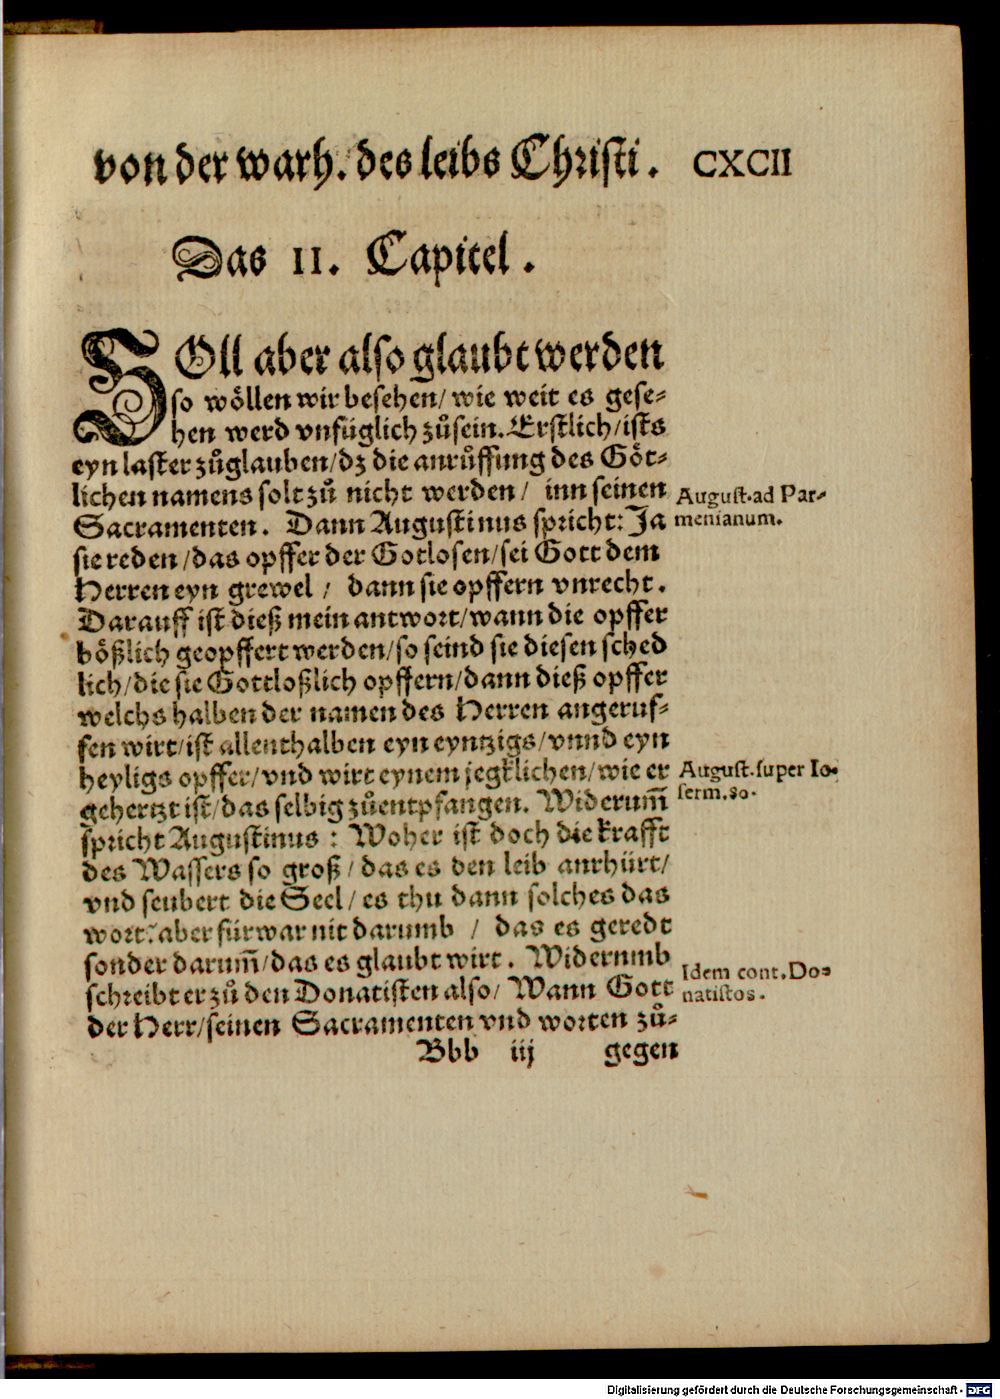 von der warh. des leibs Christi. CXCII
Das II. Capitel.
SOll aber also glaubt werden
so wöllen wir besehen/ wie weit es gese-
hen werd vnfüglich zůsein. Erstlich/ists
eyn laster zůglauben/dz die anrůffung des Göt-
lichen namens solt zů nicht werden/ inn seinen
August. ad Par-
Sacramenten. Dann Augustinus spricht: Ja
menianum.
sie reden/das opffer der Gotlosen/sei Gott dem
Herren eyn grewel/ dann sie opffern vnrecht.
Darauff ist dieß mein antwort/wann die opffer
bößlich geopffert werden/so seind sie diesen sched
lich/die sie Gottloßlich opffern/dann dieß opffer
welchs halben der namen des Herren angeruf-
fen wirt/ist allenthalben eyn eyntzigs/vnnd eyn
heyligs opffer/vnd wirt eynem jegklichen/wie er
August. super Io.
gehertzt ist/das selbig zůentpfangen. Widerum̄
serm. 80.
spricht Augustinus: Woher ist doch die krafft
des Wassers so groß/das es den leib anrhürt/
vnd seubert die Seel/es thu dann solches das
wort: aber fürwar nit darumb / das es geredt
sonder darum̄/das es glaubt wirt. Widerumb
Idem cont. Do-
schreibt er zů den Donatisten also/ Wann Gott
natistos.
der Herr/seinen Sacramenten vnd worten zů-
Bbb iij gegen
Digitalisierung gefördert durch die Deutsche Forschungsgemeinschaft - DFG